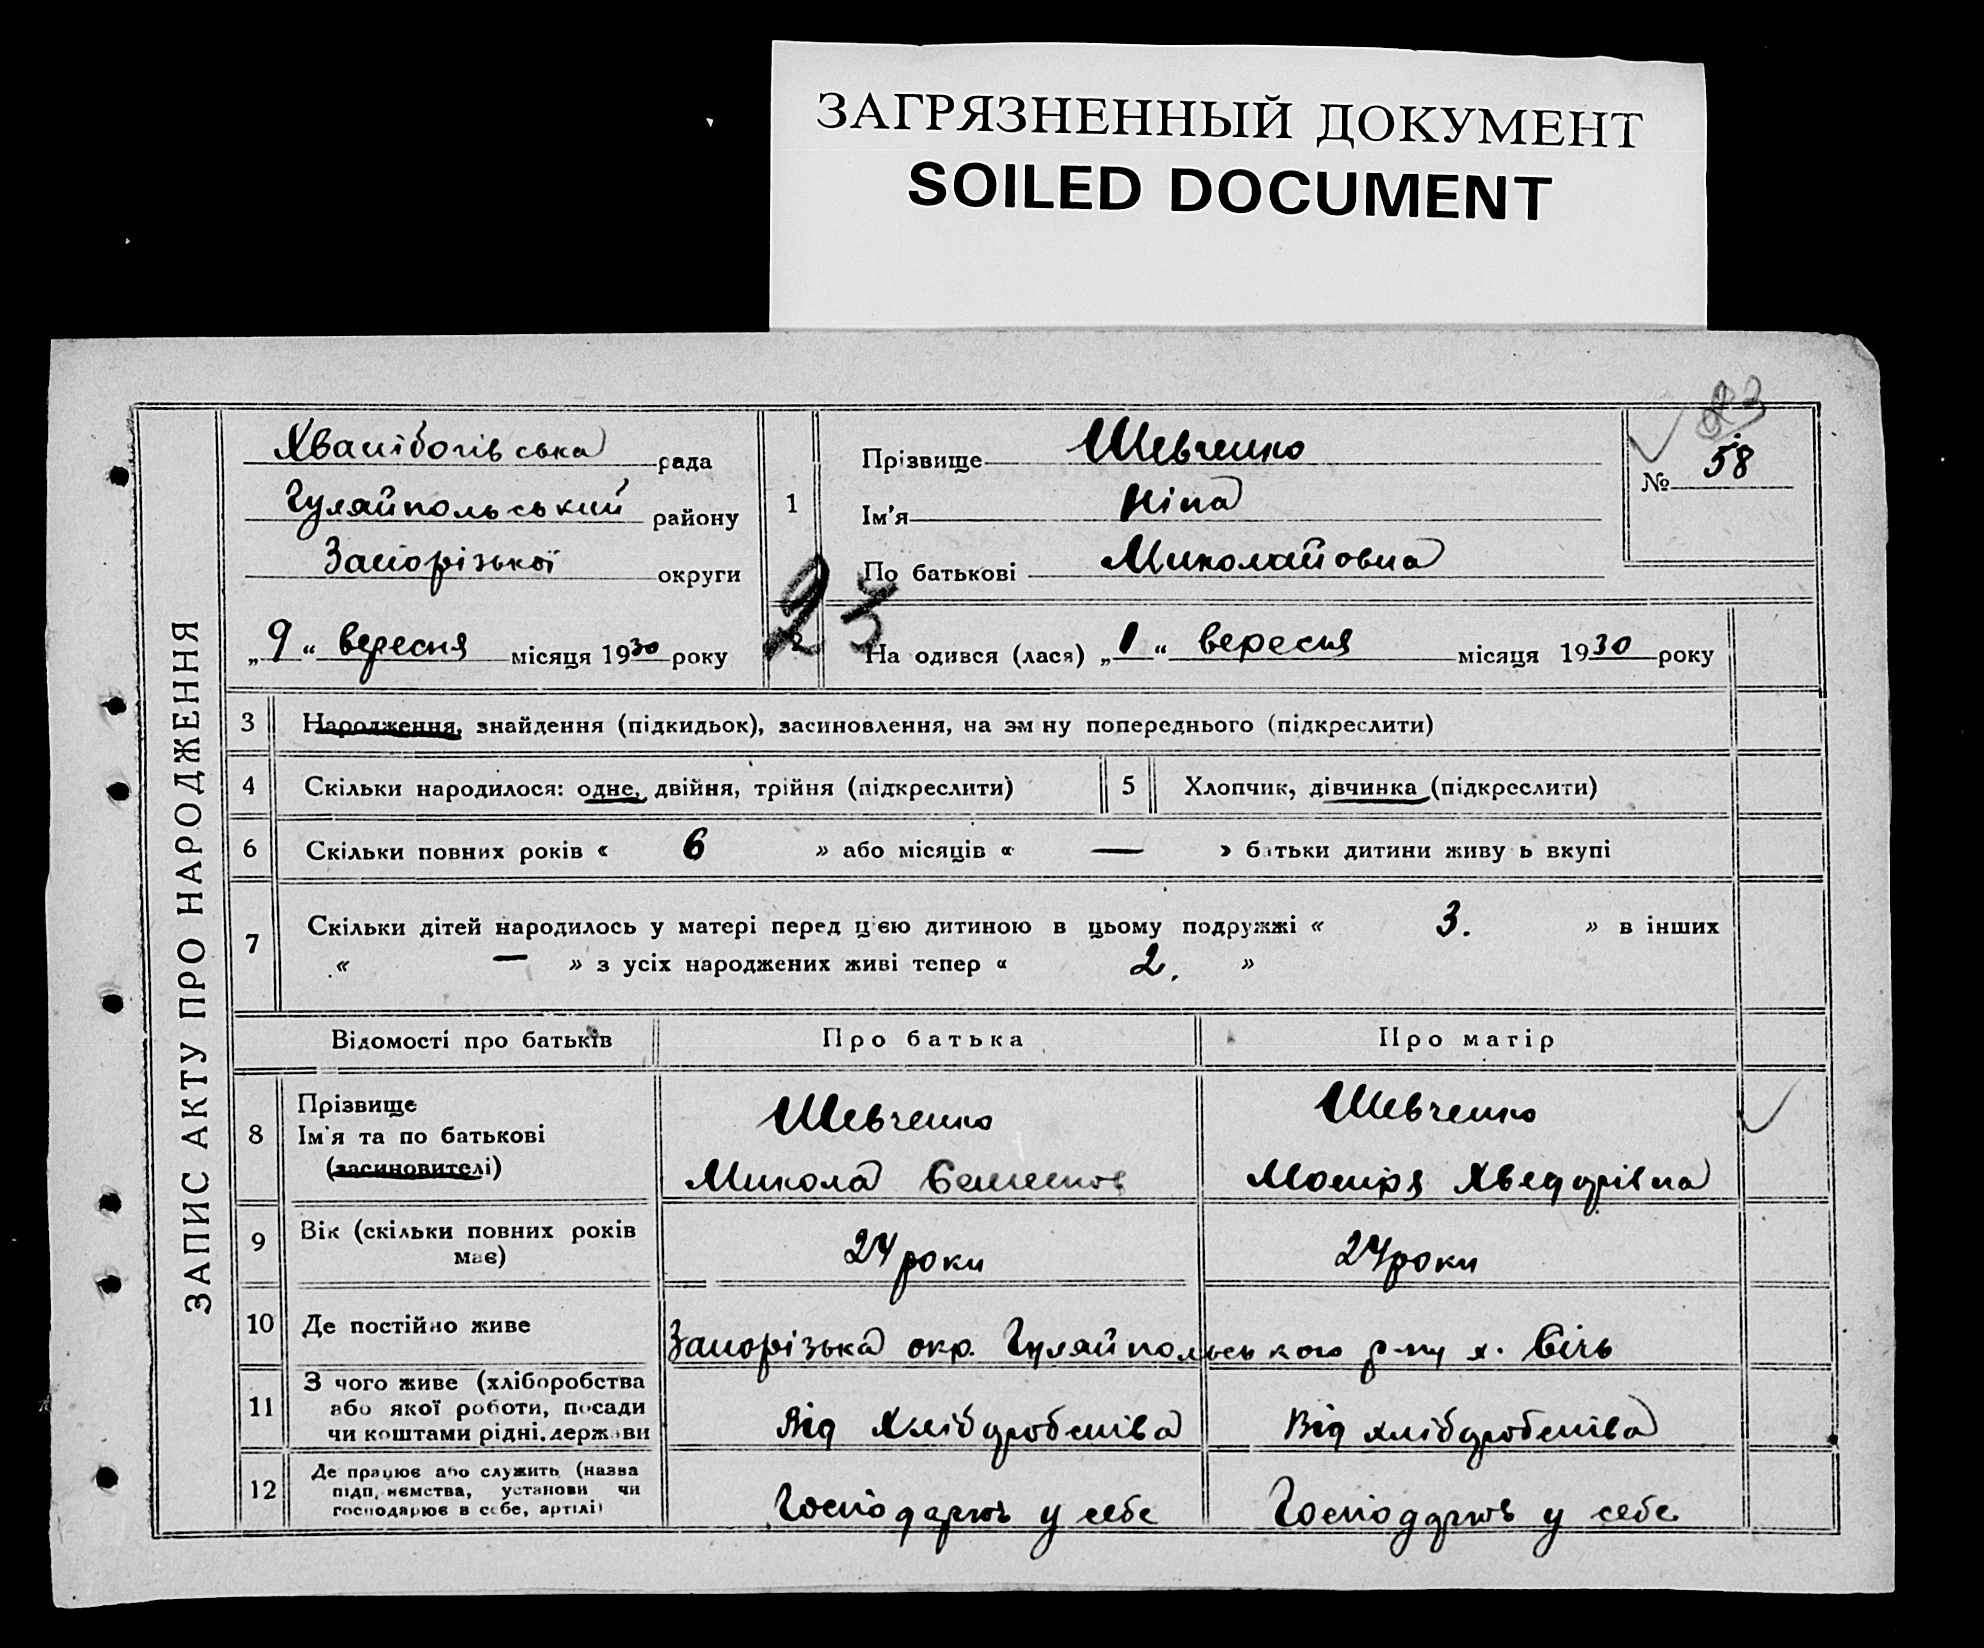 ЗАГРЯЗНЕННЫЙ ДОКУМЕНТ
SOILED DOCUMENT
ЗАПИС АКТУ ПРО НАРОДЖЕННЯ
Хвалібогівська рада
Гуляйпольський району
Запорізької округи
„9“ вересня місяця 1930 року
23
№ 58
1
Прізвище Шевченко
Ім'я Ніна
По батькові Миколайовна
На одився (лася) „1“ вересня місяця 1930 року
3 Народження, знайдення (підкидьок), засиновлення, на зм ну попереднього (підкреслити)
4 Скільки народилося: одне, двійня, трійня (підкреслити) 5 Хлопчик, дівчинка (підкреслити)
6 Скільки повних років « 6 » або місяців « — » батьки дитини живу ь вкупі
7 Скільки дітей народилось у матері перед цією дитиною в цьому подружжі « 3. » в інших
« — » з усіх народжених живі тепер « 2. »
Відомості про батьків Про батька Про матір
8 Прізвище
Ім'я та по батькові
(засиновителі)
Шевченко
Микола Семенов
Шевченко
Мотря Хведорівна
9 Вік (скільки повних років має) 24 роки 24 роки
10 Де постійно живе Запорізька окр. Гуляйпольського р-ну х. Січь
11 З чого живе (хліборобства
або якої роботи, посади
чи коштами рідні, держави
Від хліборобства Від хліборобства
12 Де працює або служить (назва
підп, немства, установи чи
господарює в себе, артілі)
Господарює у себе Господарює у себе